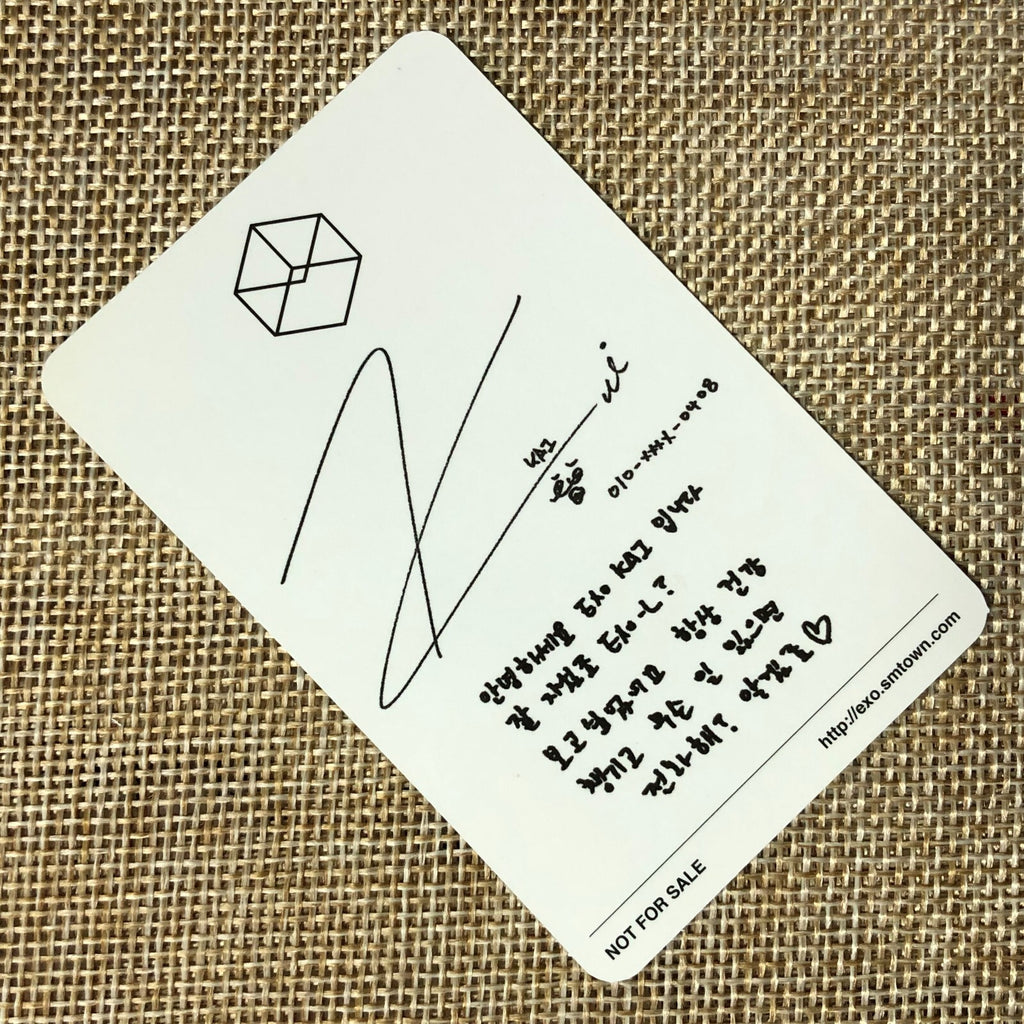 KAI
010-***-0408
안녕하세요 EXO KAI 입니다
잘 지냈죠 EXO-L?
보고싶었어요 항상 건강
챙기고 무슨 일 있으면
전화해? 알겠죠♡
http://exo.smtown.com
NOT FOR SALE